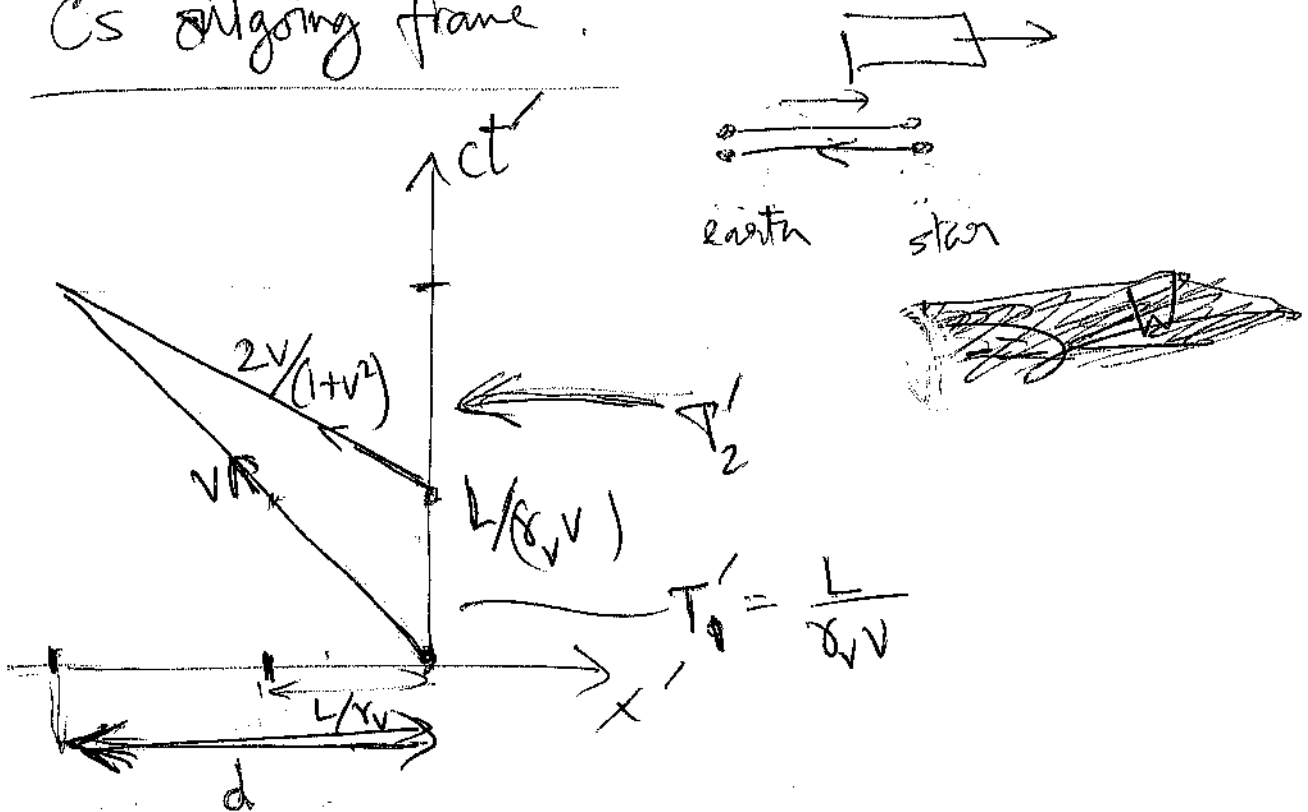 C's outgoing frame.
ct′
earth star
2v/(1+v²)
T₂′
v
L/(γᵥ v)
T₁′ = L/(γᵥ v)
x′
L/γᵥ
d